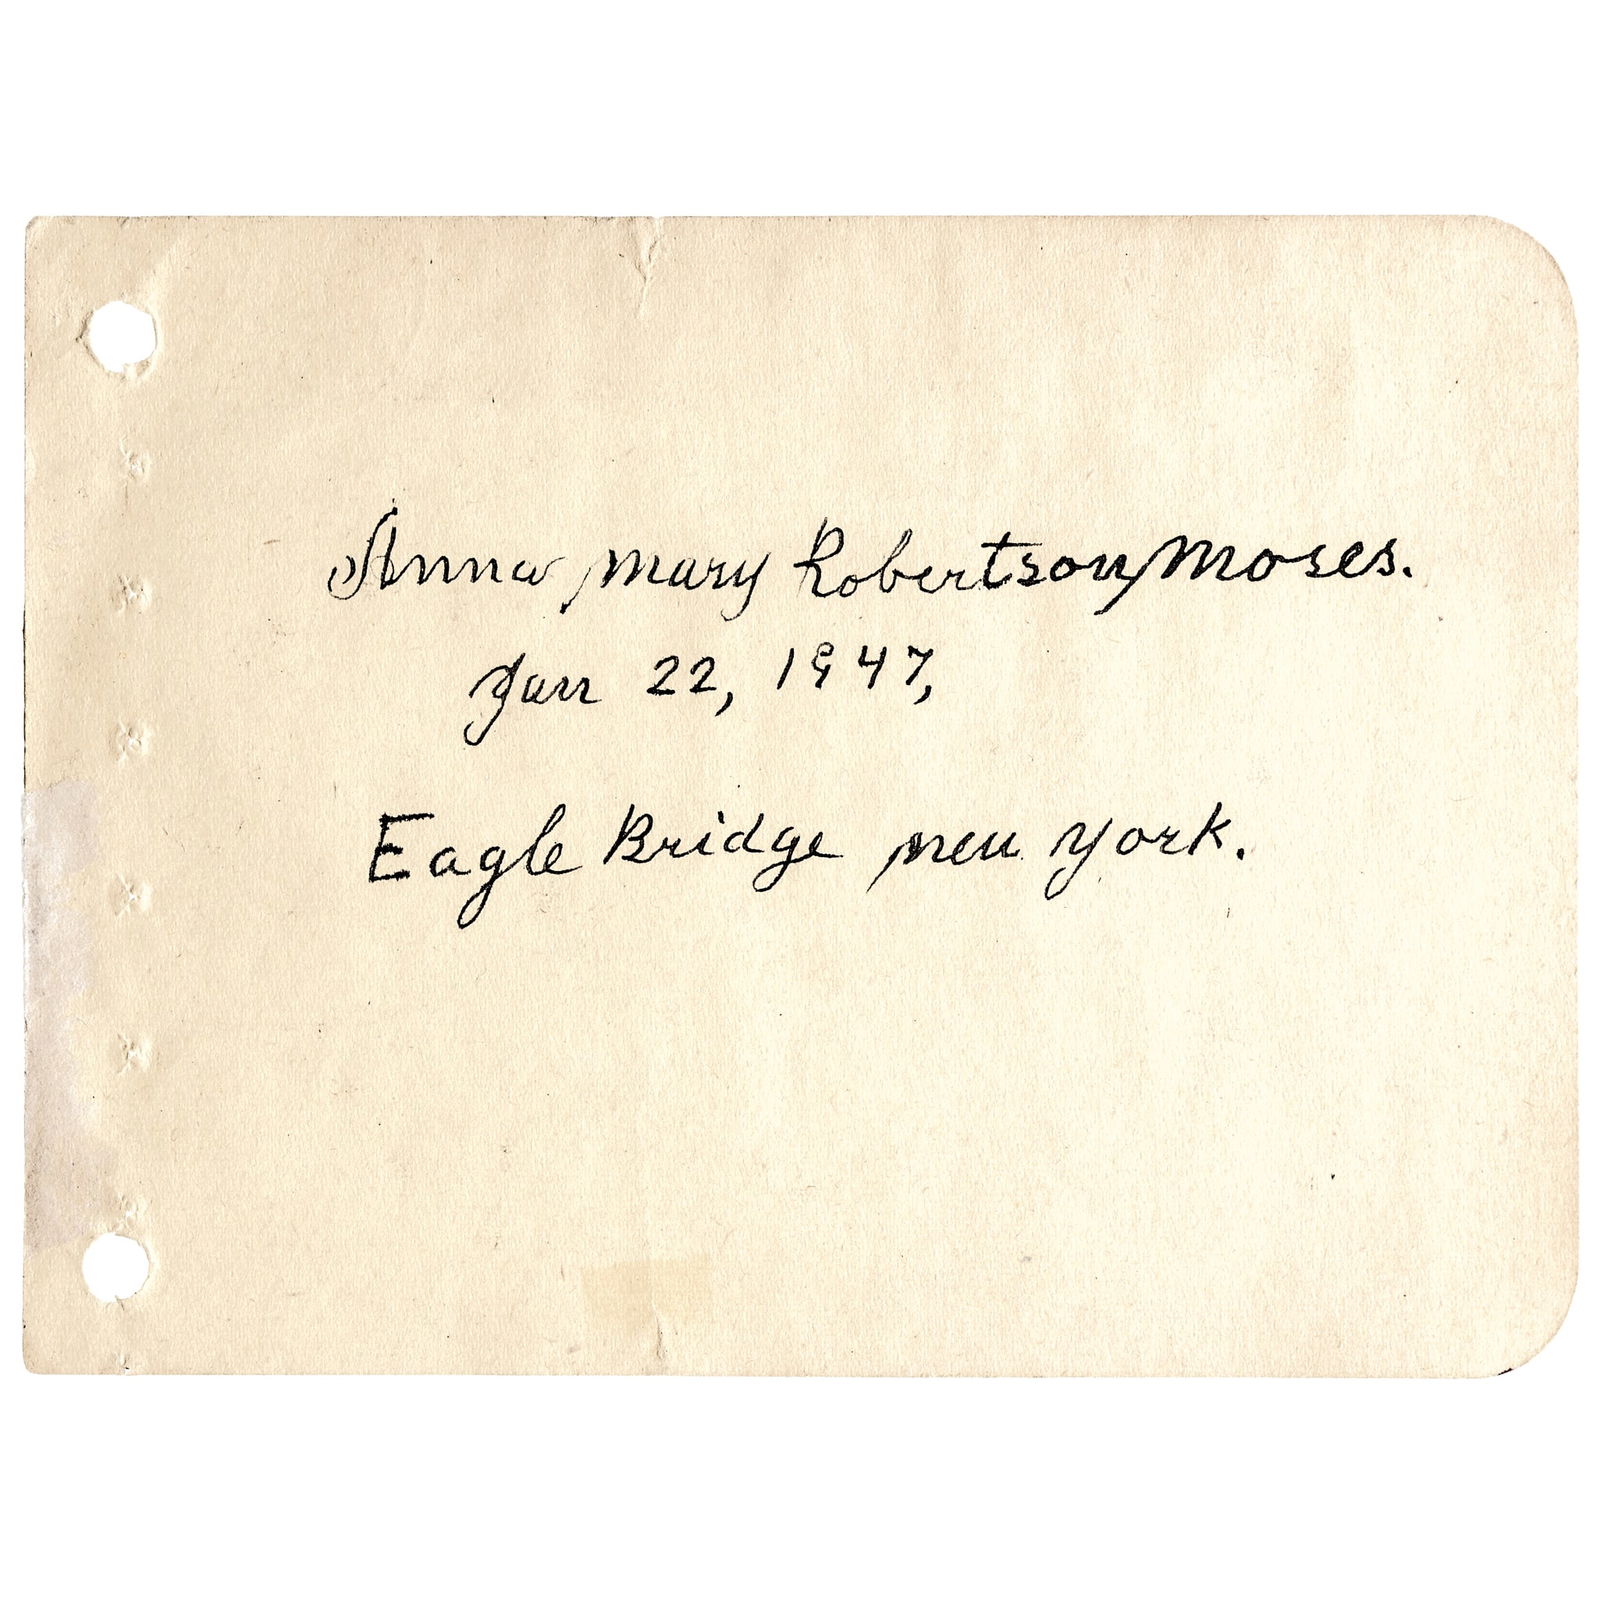 Anna Mary Robertson Moses.
Jan 22, 1947,
Eagle Bridge new york.